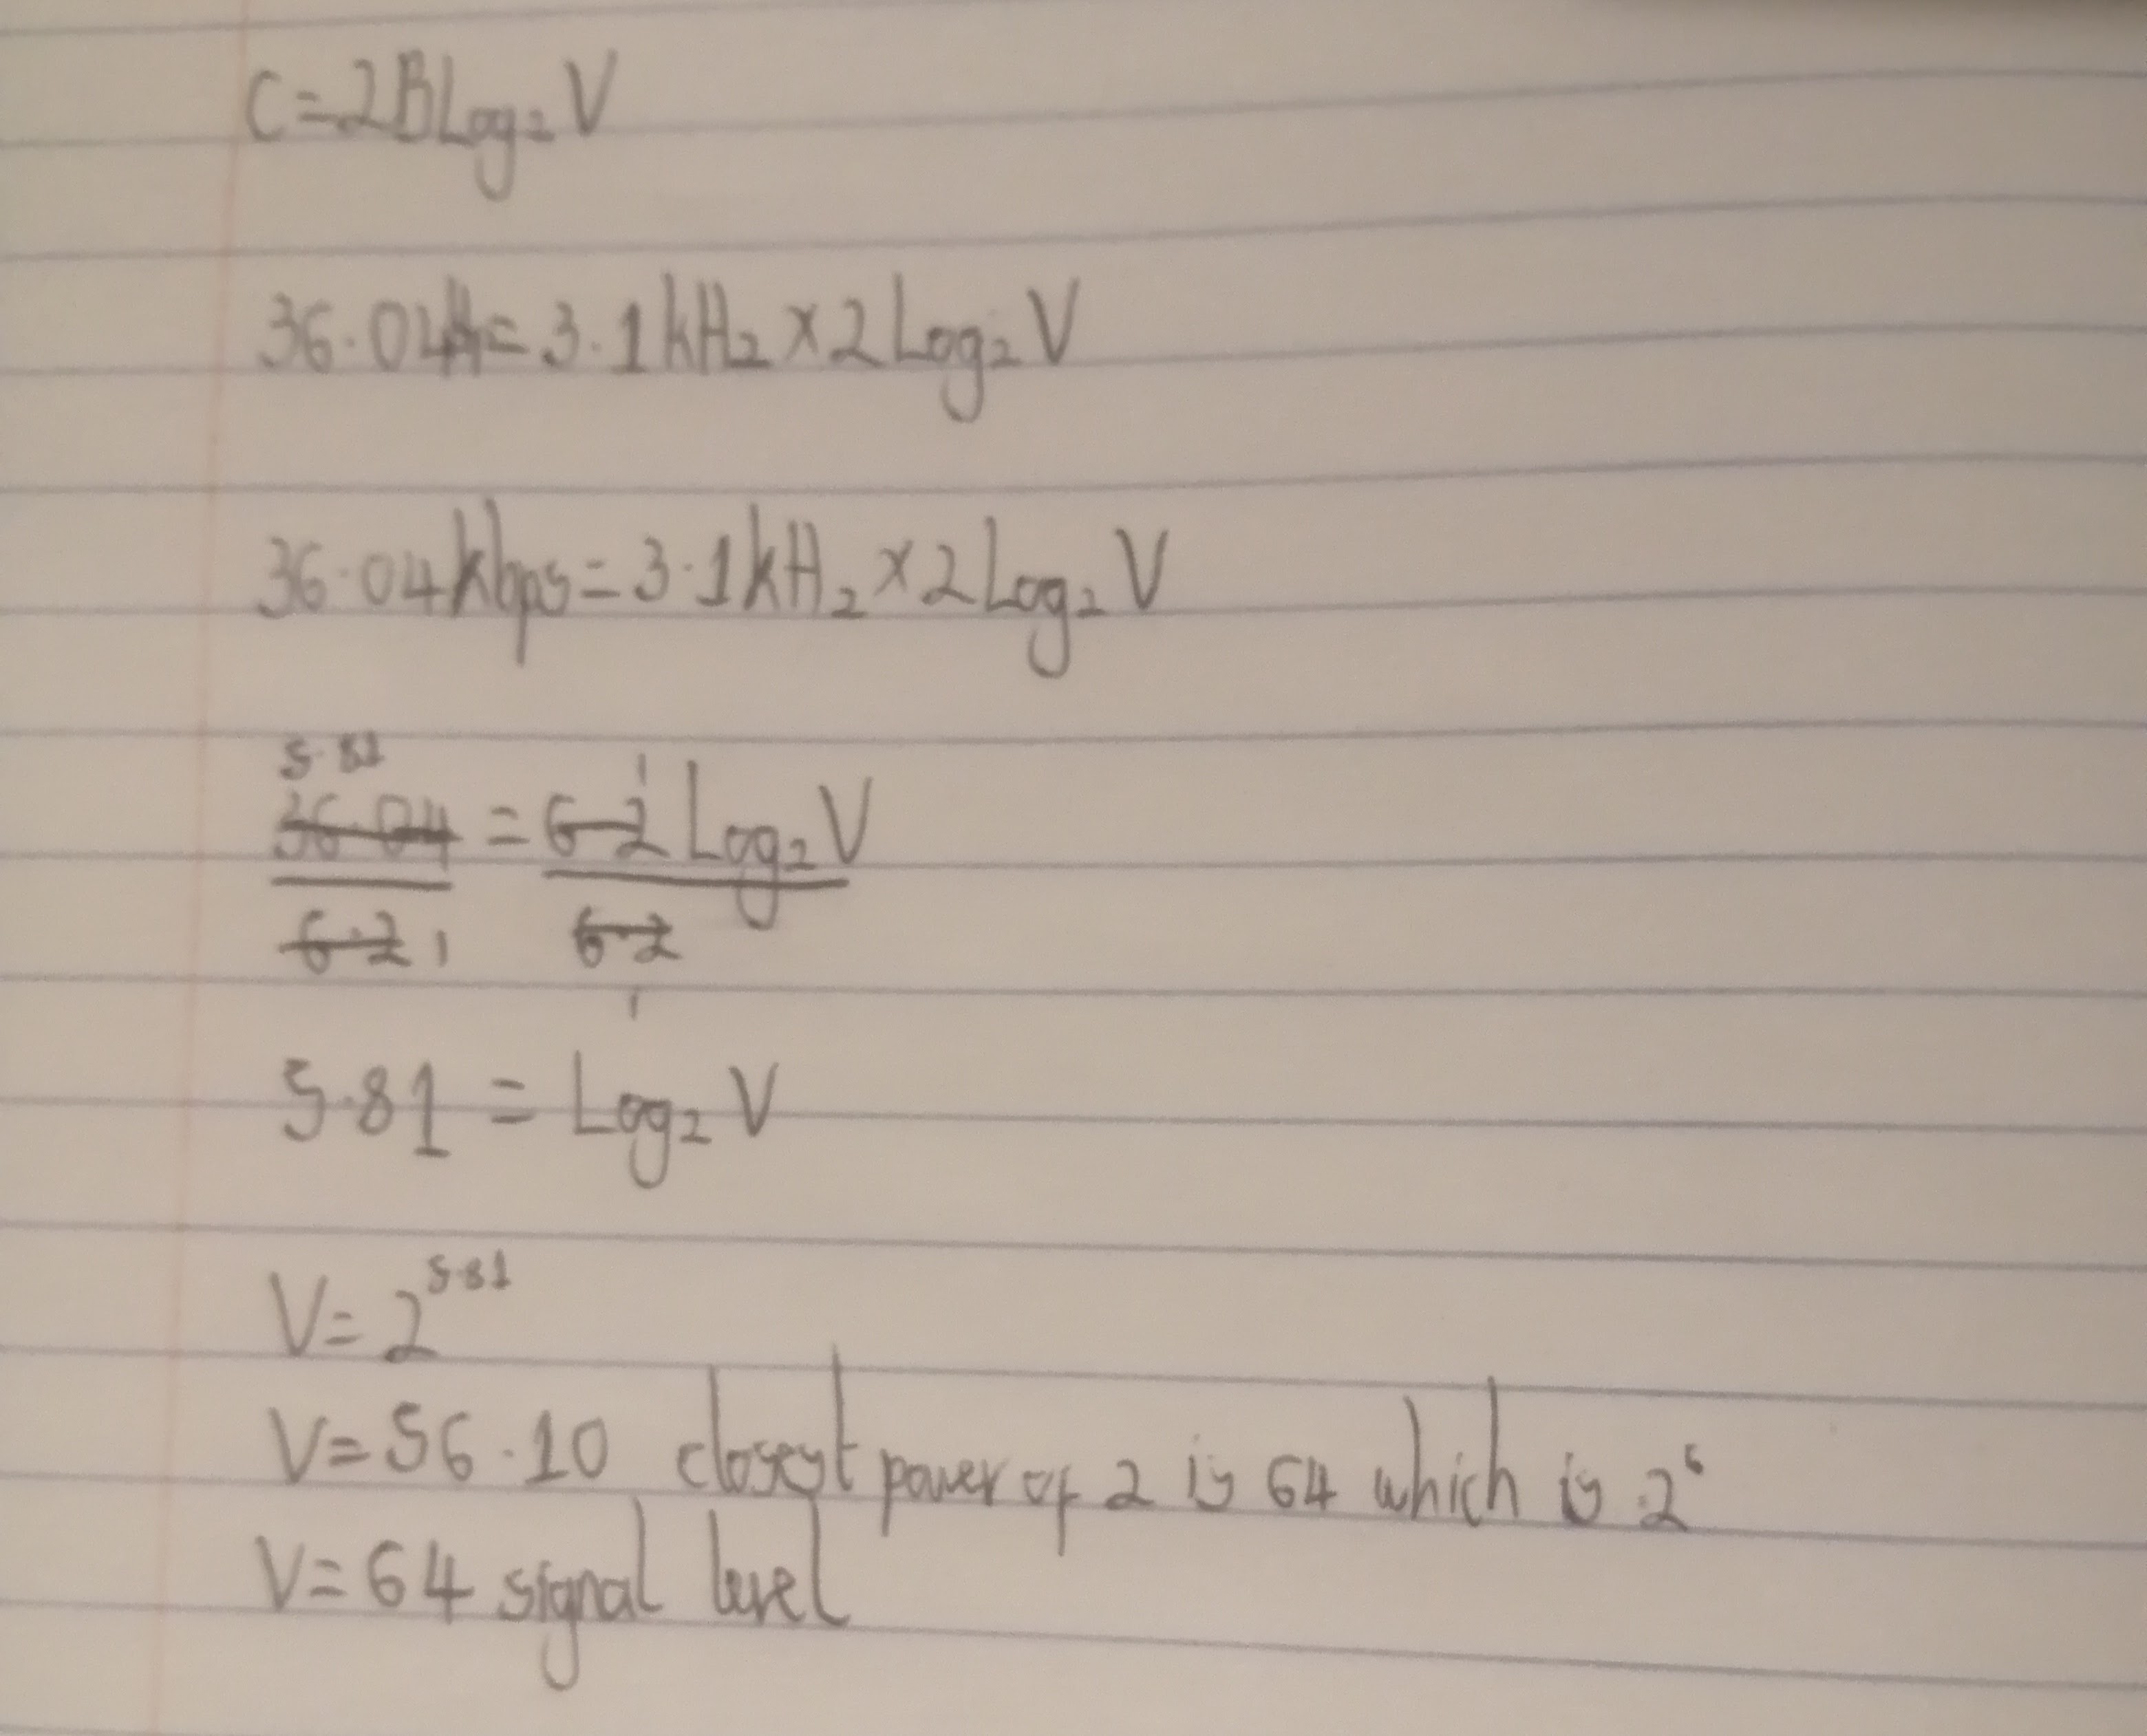 C=2BLog₂V
36.04=3.1kHz×2Log₂V
36.04kbps=3.1kHz×2Log₂V
5.81 1
36.04 = 6.2 Log₂V
6.2 1 6.2
1
5.81 = Log₂V
V=2⁵·⁸¹
V=56.10 closest power of 2 is 64 which is 2⁶
V=64 signal level